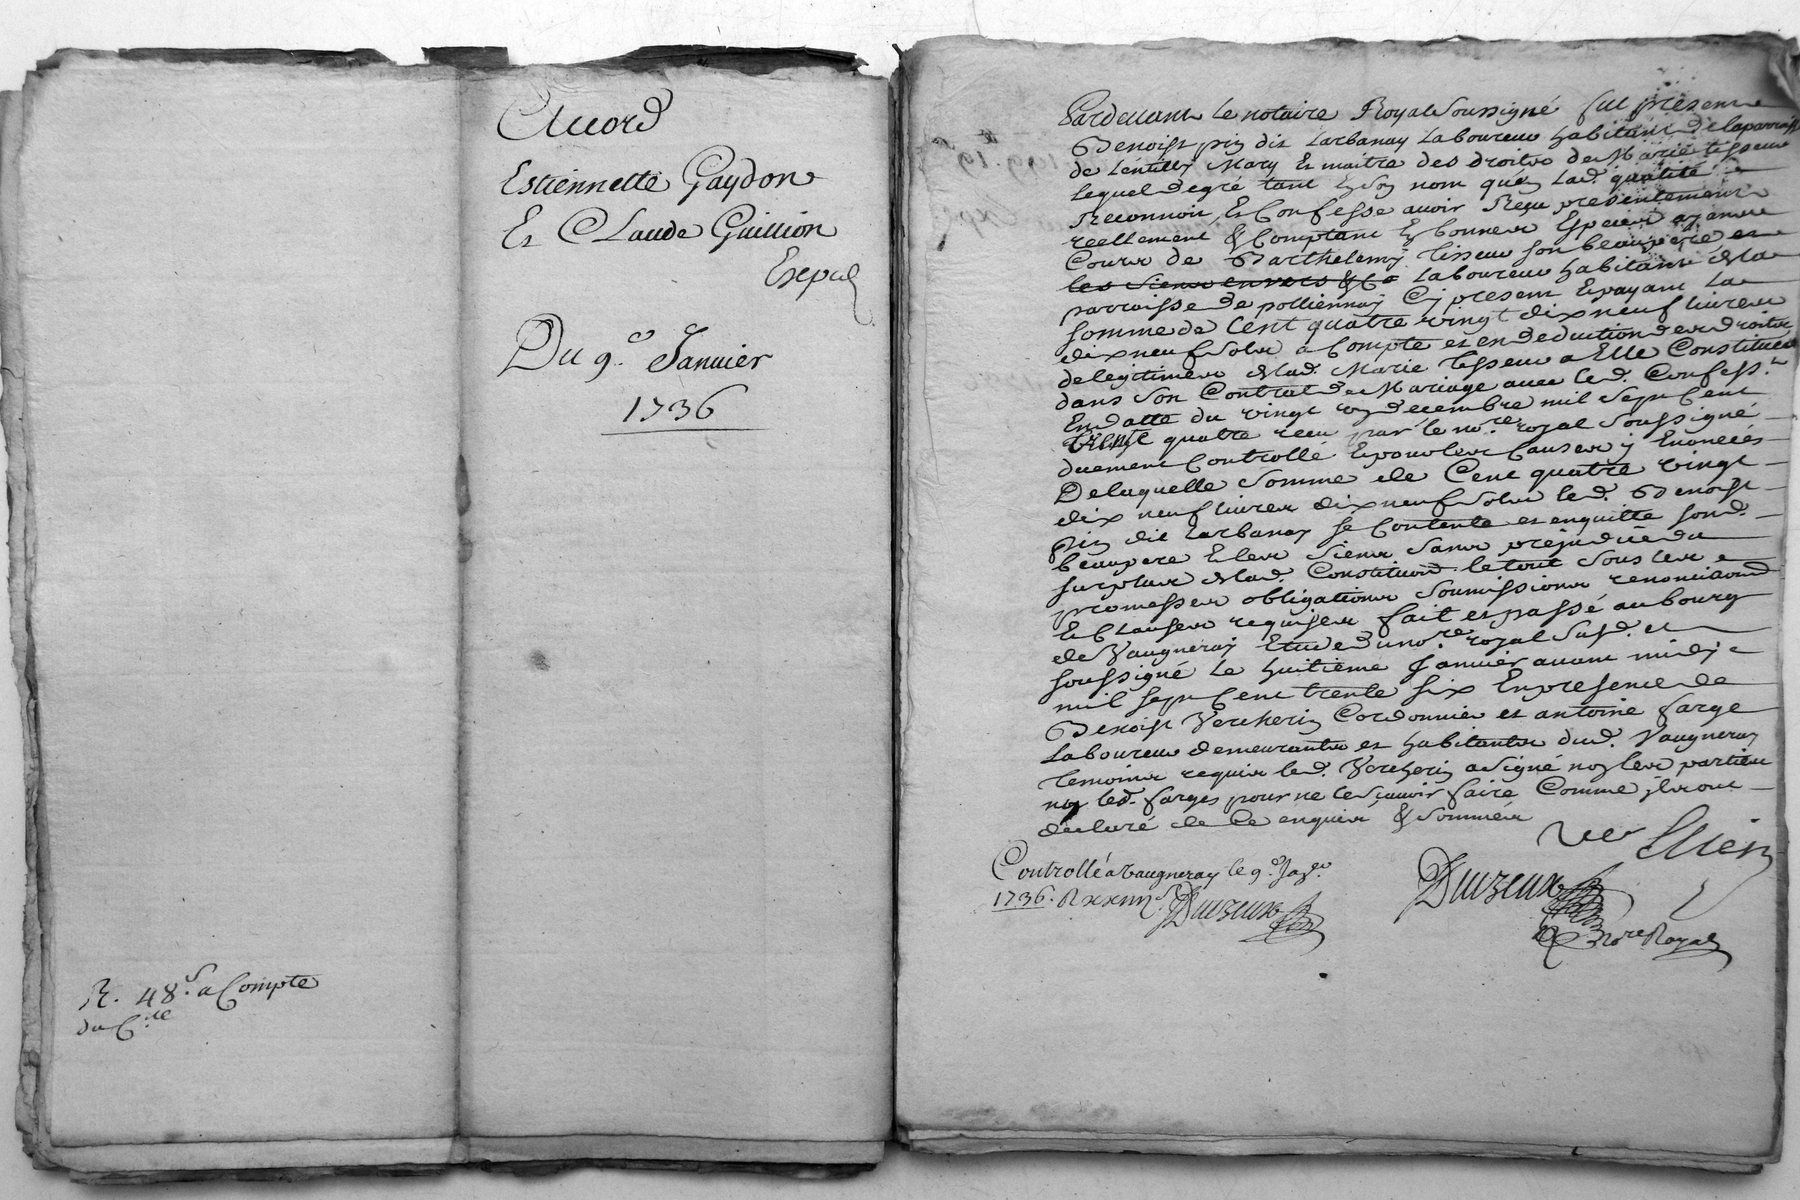 Accord
Estiennette Gaydon
Et Claude Guillion
Exped
Du 9e. Janvier
1736
R. 48s. a Compte
du C.lle
Pardevant Le notaire Royal Soussigné fut present
Benoist pin dit Larbanay Laboureur habitant de la parroisse
de Lentilly Mary Et maitre des droits de Marie tisseur
lequel de gré tant En son nom qu'en Lad. qualité
Reconnoit Et Confesse avoir Reçu presentement
reellement & Comptant En bonnes Especes ayantes
Cours de Barthelemy Tisseur son beaupere et
les siens envers & Ca Laboureur habitant de la
parroisse de pollionnay Cy present Et payant La
somme de Cent quatre vingt dix neuf livres
dix neuf sols a Compte et en deduction des droits
de legitimes de lad. Marie Tisseur a Elle Constitués
dans son Contrat de Mariage avec led. Confess.t
En datte du vingt decembre mil sept Cent
trente quatre recu par le no.re royal soussigné
duement Controllé Et pour les Causes y Enoncées
De laquelle somme de Cent quatre vingt
dix neuf livres dix neuf sols led. Benoist
pin dit Larbanay se Contente et en quitte sond.
beaupere Et les siens sans prejudice du
surplus de lad. Constituõn le tout sous les
promesses obligations soumissions renonciaõns
Et Clauses requises fait et passé au bourg
de Vaugneray Etude du no.re royal susd. et
soussigné Le huitieme Janvier avant midy
mil sept Cent trente six En presence de
Benoist Vercherin Cordonnier et antoine farge
Laboureur demeurants et habitants dud. Vaugneray
temoins requis led. Vercherin a signé non les parties
ny led. farges pour ne le sçavoir faire Comme ils ont
declaré de Ce enquis & sommés
Duvzeux
no.re Royal
Controllé a Vaugneray le 9e. Janv.er
1736. R
Duvzeux